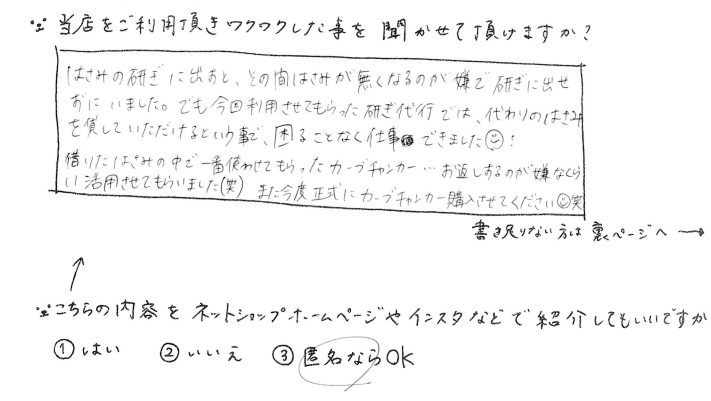 ※当店をご利用頂きワクワクした事を聞かせて頂けますか?
はさみの研ぎに出すと、その間はさみが無くなるのが嫌で研ぎに出せ
ずにいました。でも今回利用させてもらった研ぎ代行では、代わりのはさみ
を貸していただけるという事で、困ることなく仕事できました☺!
借りたはさみの中で一番使わせてもらったカーブチャンカー…お返しするのが嫌なくら
い活用させてもらいました(笑) また今度正式にカーブチャンカー購入させてください☺笑
書き足りない方は裏ページへ→
※こちらの内容をネットショップホームページやインスタなどで紹介してもいいですか
①はい ②いいえ ③匿名ならOK